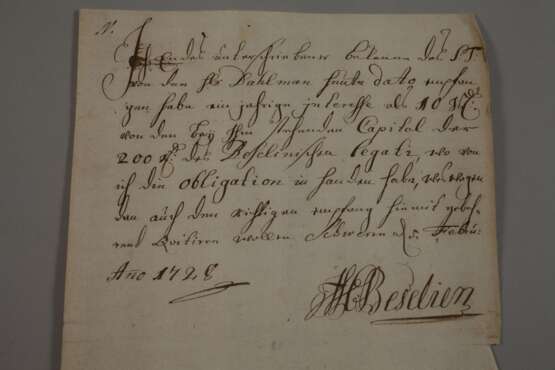 N.
Endes unterschriebener bekenne das ich
von den H. Dahlman heute dato empfan
gen habe ein jahrige interesse als 10
von den bey Ihm stehenden Capital der
200 des Beselinischen legatz, wo von
ich die obligation in handen habe, weswegen
den auch den richtigen empfang hiemit gebüh
rent Quitiren wollen Schwerin d 5. Febru:
Año 1728
Beselien